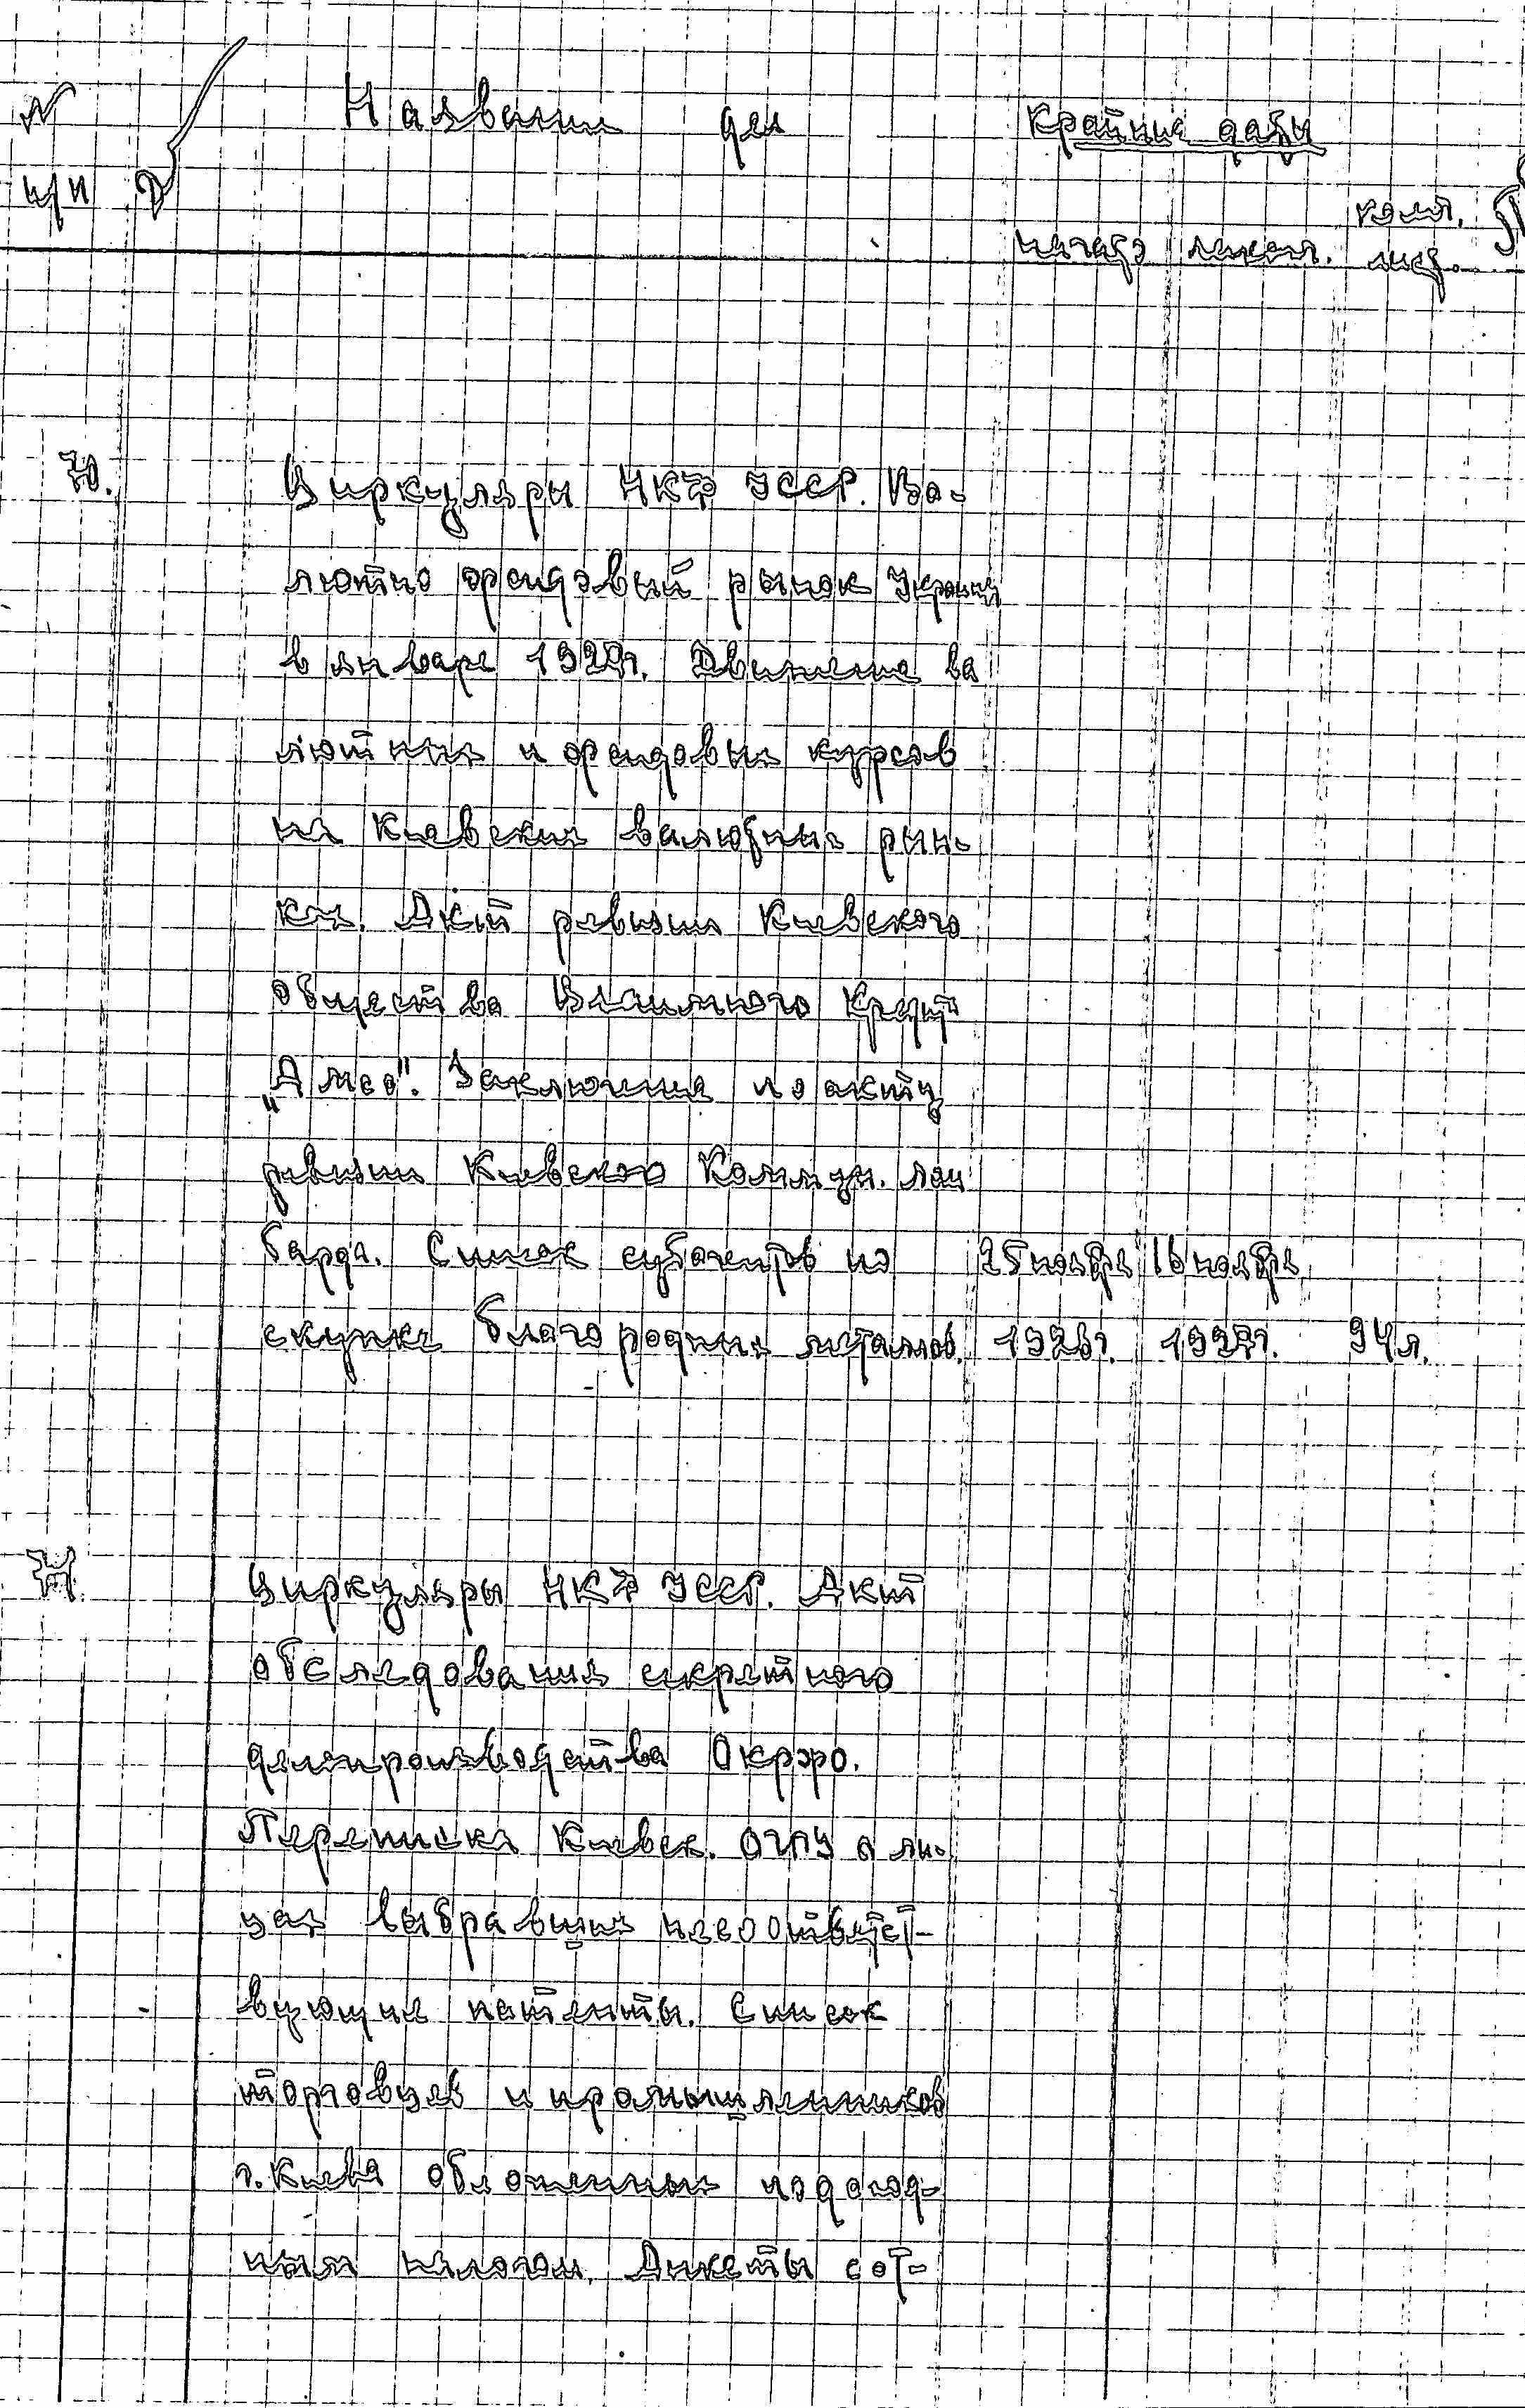 № Название дел Крайние даты
п/п
кол.
начало оконч. лист.
70. Циркуляры НКФ УССР. Ва-
лютно фондовый рынок Украины
в январе 1927г. Движение ва
лютных и фондовых курсов
на Киевских валютных рын-
ках. Акт ревизии Киевского
общества Взаимного Кредит
Заключение по акту
ревизии Киевского Коммун. лом
барда. Список субагентов по 25 ноября 16 ноября
скупке благородных металлов. 1926г. 1927г. 94л.
71. Циркуляры НКФ УССР. Акт
обследования секретного
делопроизводства Окрфо.
Переписка Киевск. ОГПУ о ли-
цах выбравших несоответст-
вующие патенты. Список
торговцев и промышленников
г. Киева обложенных подоход-
ным налогом. Анкеты сот-